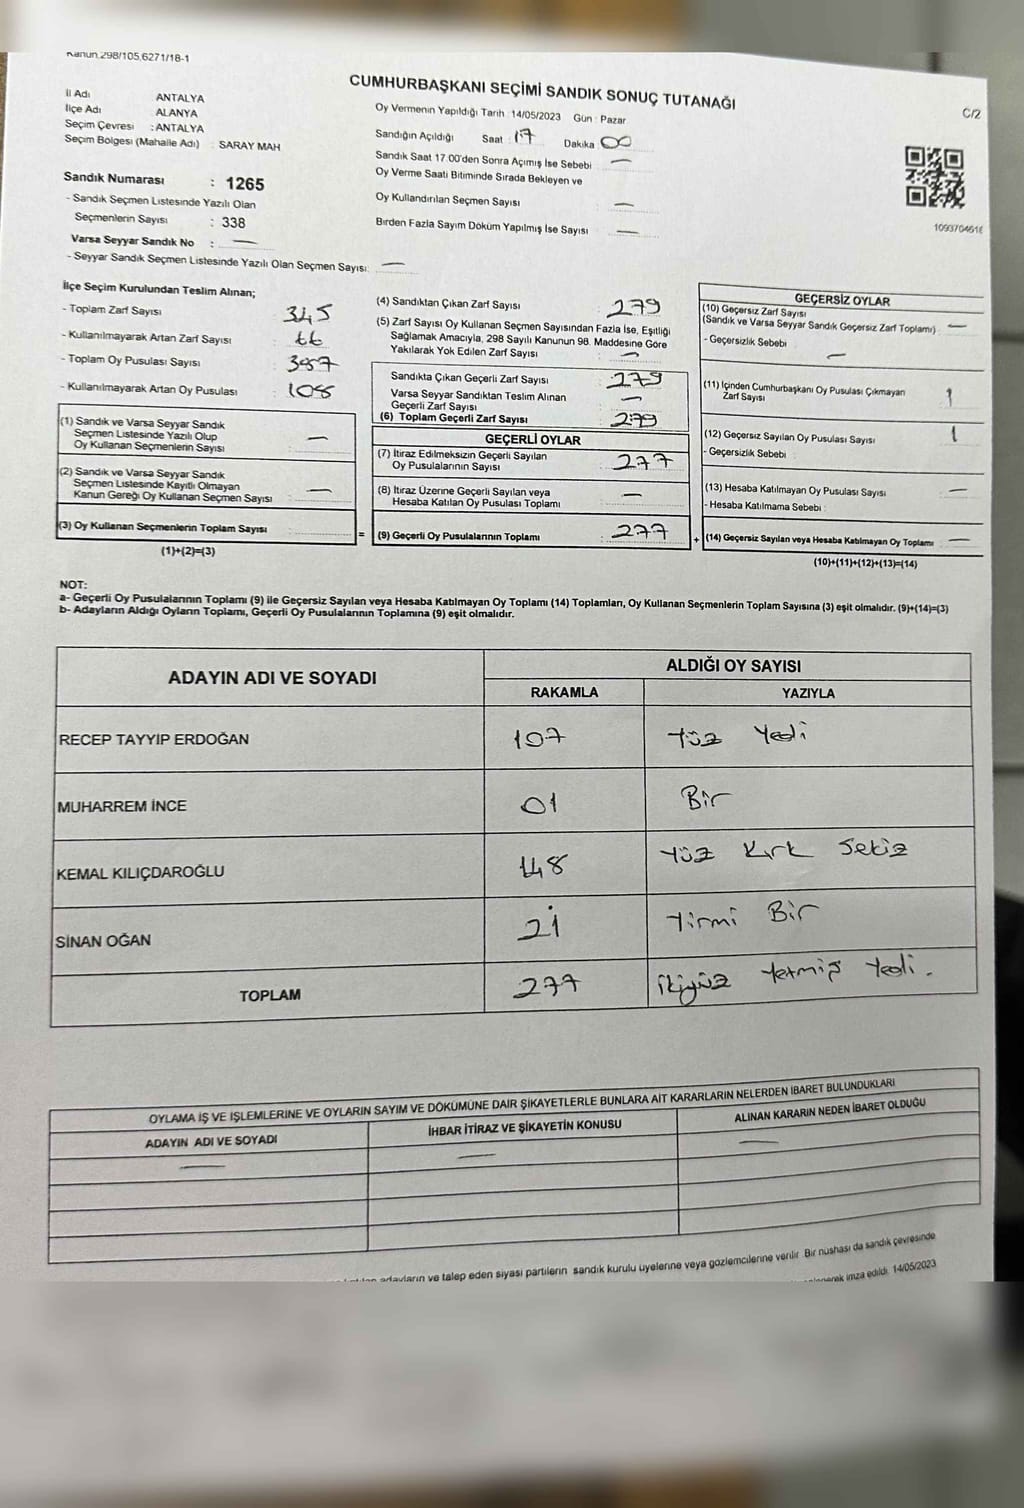 Kanun.298/105,6271/18-1
CUMHURBAŞKANI SEÇİMİ SANDIK SONUÇ TUTANAĞI
C/2
İl Adı ANTALYA
İlçe Adı ALANYA
Seçim Çevresi : ANTALYA
Seçim Bölgesi (Mahalle Adı) : SARAY MAH
Sandık Numarası : 1265
- Sandık Seçmen Listesinde Yazılı Olan
Seçmenlerin Sayısı : 338
Varsa Seyyar Sandık No : —
- Seyyar Sandık Seçmen Listesinde Yazılı Olan Seçmen Sayısı: —
Oy Vermenin Yapıldığı Tarih : 14/05/2023 Gün : Pazar
Sandığın Açıldığı Saat : 17 Dakika : 00
Sandık Saat 17.00'den Sonra Açımış İse Sebebi : —
Oy Verme Saati Bitiminde Sırada Bekleyen ve
Oy Kullandırılan Seçmen Sayısı : —
Birden Fazla Sayım Döküm Yapılmış İse Sayısı : —
1093704616
İlçe Seçim Kurulundan Teslim Alınan;
- Toplam Zarf Sayısı : 345
- Kullanılmayarak Artan Zarf Sayısı : 66
- Toplam Oy Pusulası Sayısı : 387
- Kullanılmayarak Artan Oy Pusulası : 108
(1) Sandık ve Varsa Seyyar Sandık
Seçmen Listesinde Yazılı Olup
Oy Kullanan Seçmenlerin Sayısı : —
(2) Sandık ve Varsa Seyyar Sandık
Seçmen Listesinde Kayıtlı Olmayan
Kanun Gereği Oy Kullanan Seçmen Sayısı : —
(3) Oy Kullanan Seçmenlerin Toplam Sayısı
(1)+(2)=(3)
=
(4) Sandıktan Çıkan Zarf Sayısı : 279
(5) Zarf Sayısı Oy Kullanan Seçmen Sayısından Fazla İse, Eşitliği
Sağlamak Amacıyla, 298 Sayılı Kanunun 98. Maddesine Göre
Yakılarak Yok Edilen Zarf Sayısı : —
Sandıkta Çıkan Geçerli Zarf Sayısı : 279
Varsa Seyyar Sandıktan Teslim Alınan
Geçerli Zarf Sayısı : —
(6) Toplam Geçerli Zarf Sayısı : 279
GEÇERLİ OYLAR
(7) İtiraz Edilmeksizin Geçerli Sayılan
Oy Pusulalarının Sayısı : 277
(8) İtiraz Üzerine Geçerli Sayılan veya
Hesaba Katılan Oy Pusulası Toplamı : —
(9) Geçerli Oy Pusulalarının Toplamı : 277
+
GEÇERSİZ OYLAR
(10) Geçersiz Zarf Sayısı
(Sandık ve Varsa Seyyar Sandık Geçersiz Zarf Toplamı) : —
- Geçersizlik Sebebi : —
(11) İçinden Cumhurbaşkanı Oy Pusulası Çıkmayan
Zarf Sayısı : 1
(12) Geçersiz Sayılan Oy Pusulası Sayısı : 1
- Geçersizlik Sebebi :
(13) Hesaba Katılmayan Oy Pusulası Sayısı : —
- Hesaba Katılmama Sebebi :
(14) Geçersiz Sayılan veya Hesaba Katılmayan Oy Toplamı : —
(10)+(11)+(12)+(13)=(14)
NOT:
a- Geçerli Oy Pusulalarının Toplamı (9) ile Geçersiz Sayılan veya Hesaba Katılmayan Oy Toplamı (14) Toplamları, Oy Kullanan Seçmenlerin Toplam Sayısına (3) eşit olmalıdır. (9)+(14)=(3)
b- Adayların Aldığı Oyların Toplamı, Geçerli Oy Pusulalarının Toplamına (9) eşit olmalıdır.
ADAYIN ADI VE SOYADI ALDIĞI OY SAYISI
RAKAMLA YAZIYLA
RECEP TAYYİP ERDOĞAN 107 Yüz Yedi
MUHARREM İNCE 01 Bir
KEMAL KILIÇDAROĞLU 148 Yüz Kırk Sekiz
SİNAN OĞAN 21 Yirmi Bir
TOPLAM 277 İkiyüz Yetmiş Yedi.
OYLAMA İŞ VE İŞLEMLERİNE VE OYLARIN SAYIM VE DÖKÜMÜNE DAİR ŞİKAYETLERLE BUNLARA AİT KARARLARIN NELERDEN İBARET BULUNDUKLARI
ADAYIN ADI VE SOYADI İHBAR İTİRAZ VE ŞİKAYETİN KONUSU ALINAN KARARIN NEDEN İBARET OLDUĞU
— — —
adayların ve talep eden siyasi partilerin sandık kurulu üyelerine veya gözlemcilerine verilir. Bir nüshası da sandık çevresinde
imza edildi. 14/05/2023